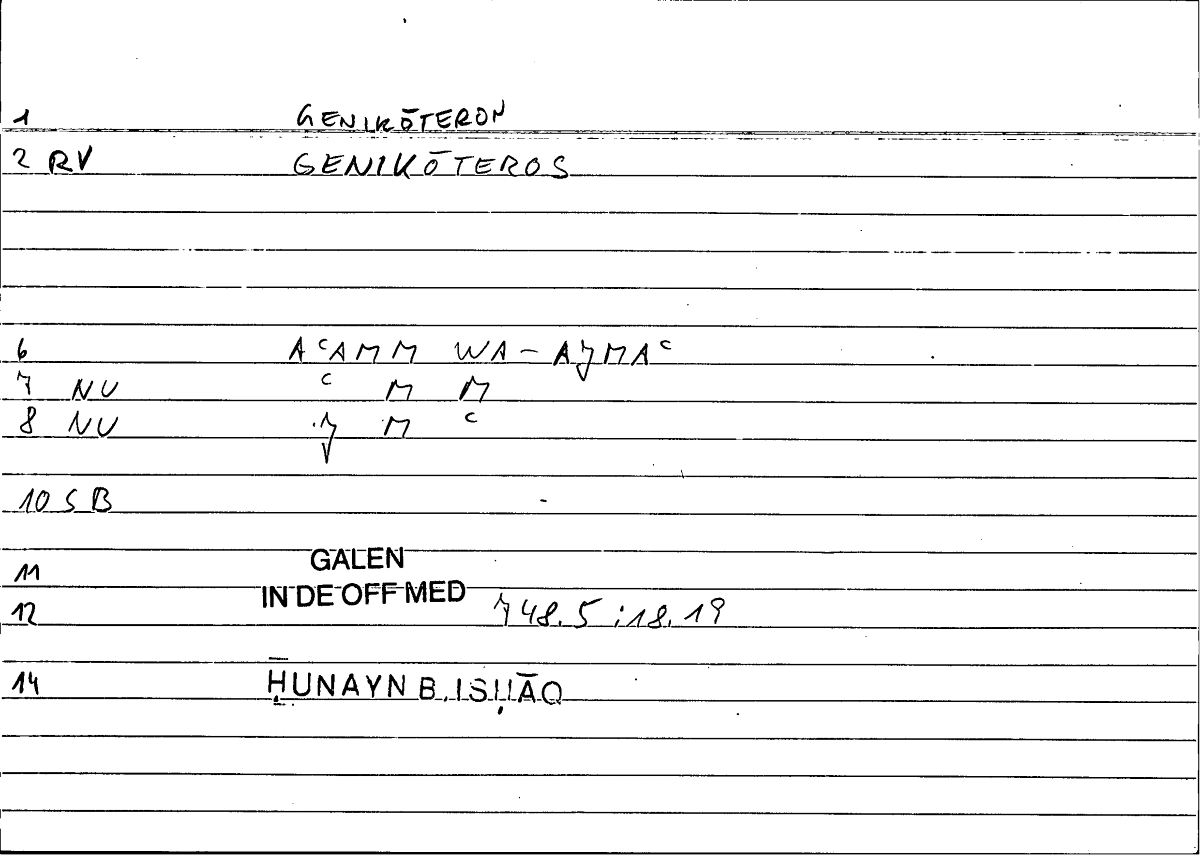 1 GENIKŌTERON
2 RV GENIKŌTEROS
6 AᶜAMM WA-AǦMAᶜ
7 NU ᶜ M M
8 NU Ǧ M ᶜ
10 SB -
11 GALEN
12 IN DE OFF MED 748.5;18.19
14 ḤUNAYN B. ISḤĀQ